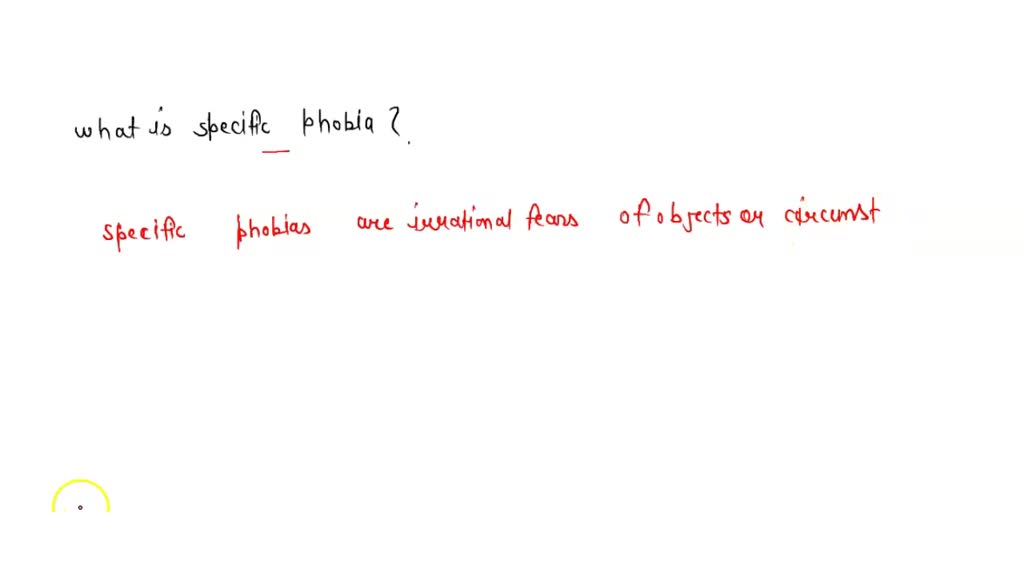 what is specific phobia?
specific phobias are irrational fears of objects or circumst